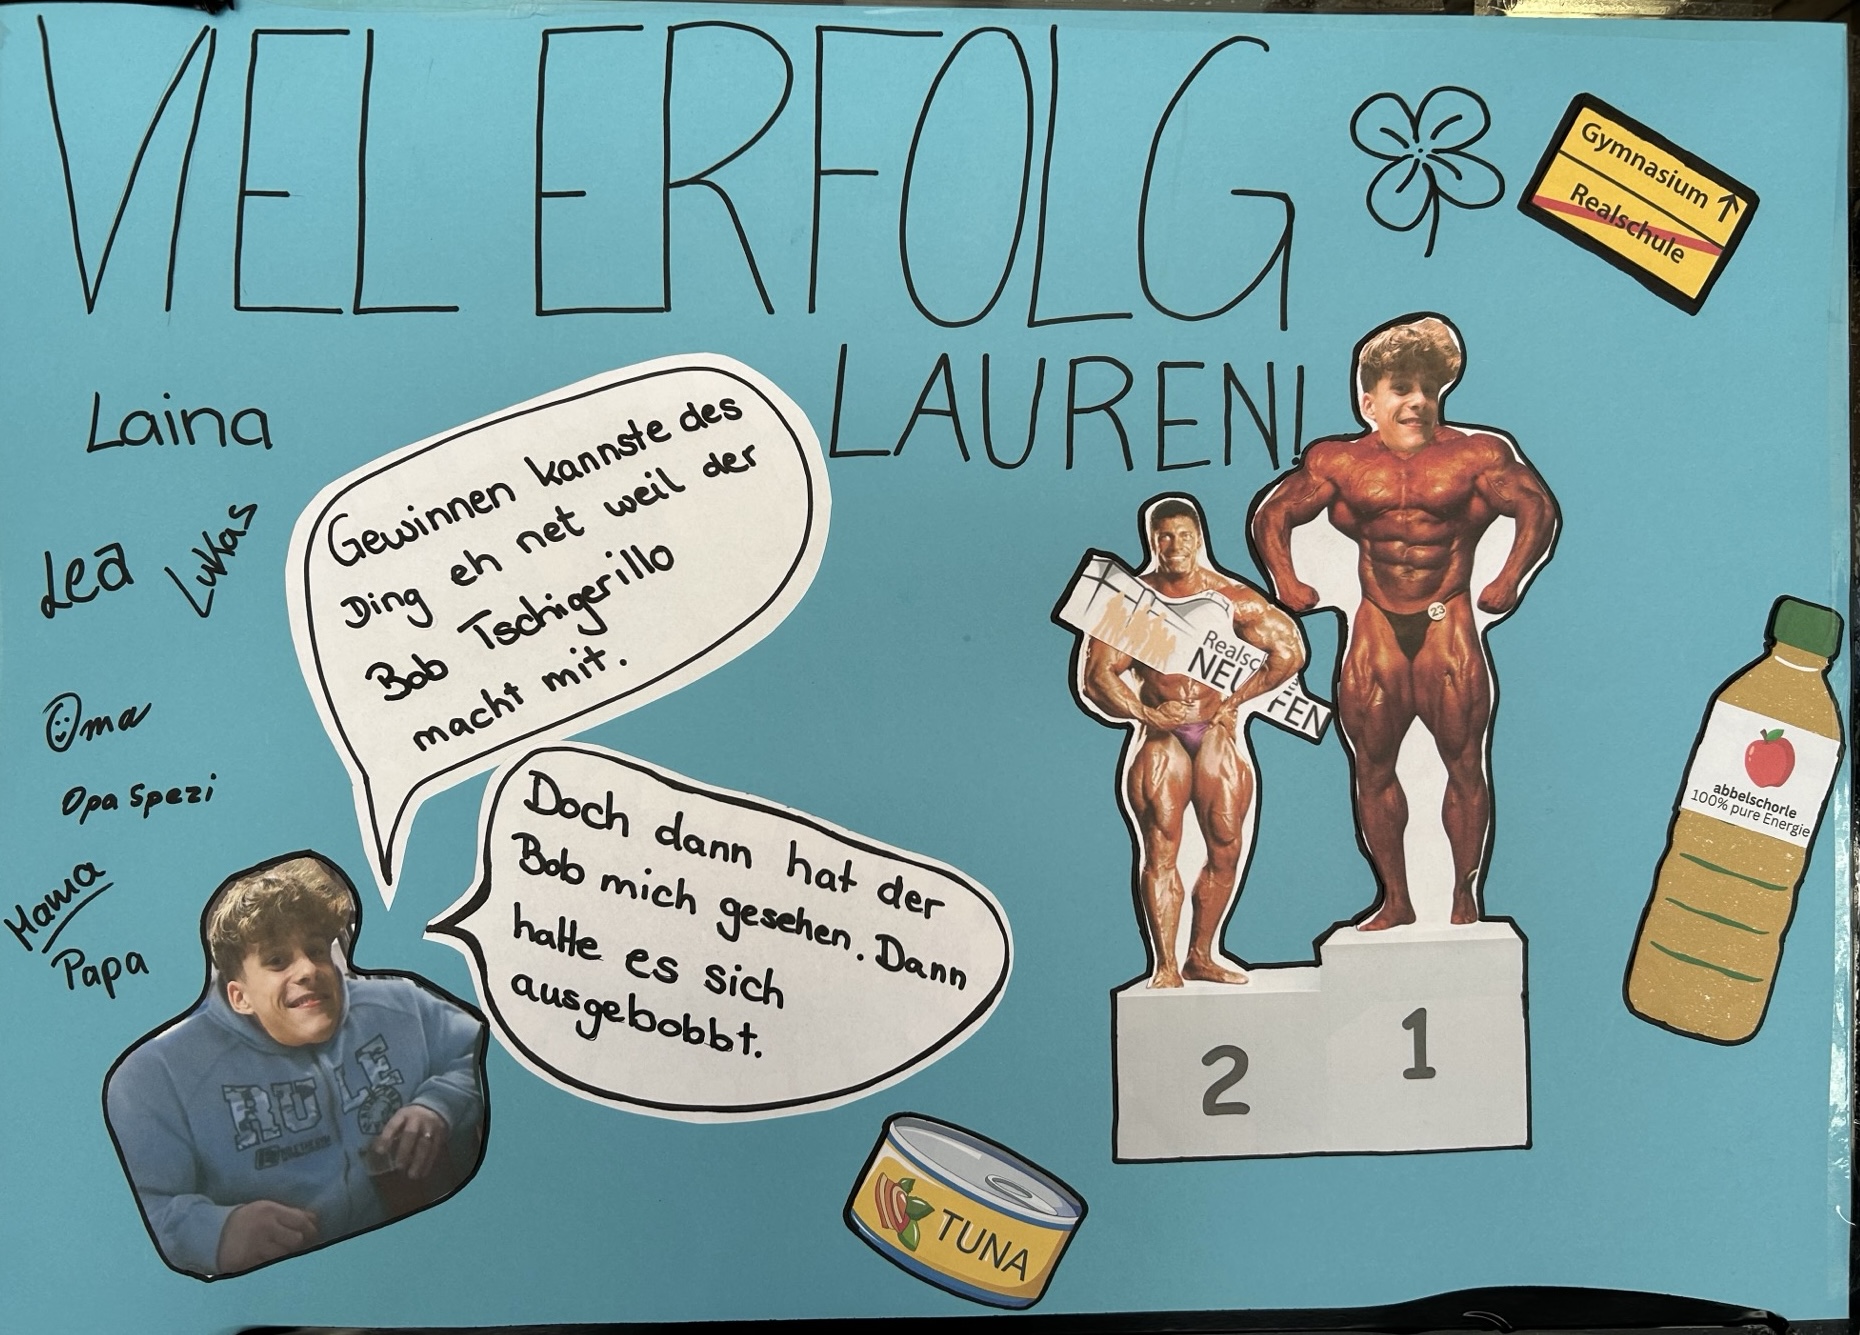 VIEL ERFOLG
LAUREN!
Gymnasium
Realschule
Laina
Lea
Lukas
Oma
Opa Spezi
Mama
Papa
Gewinnen kannste des
Ding eh net weil der
Bob Tschigerillo
macht mit.
Doch dann hat der
Bob mich gesehen. Dann
hatte es sich
ausgebobbt.
RULE
Realsc
NEU
FEN
23
2
1
abbelschorle
100% pure Energie
TUNA